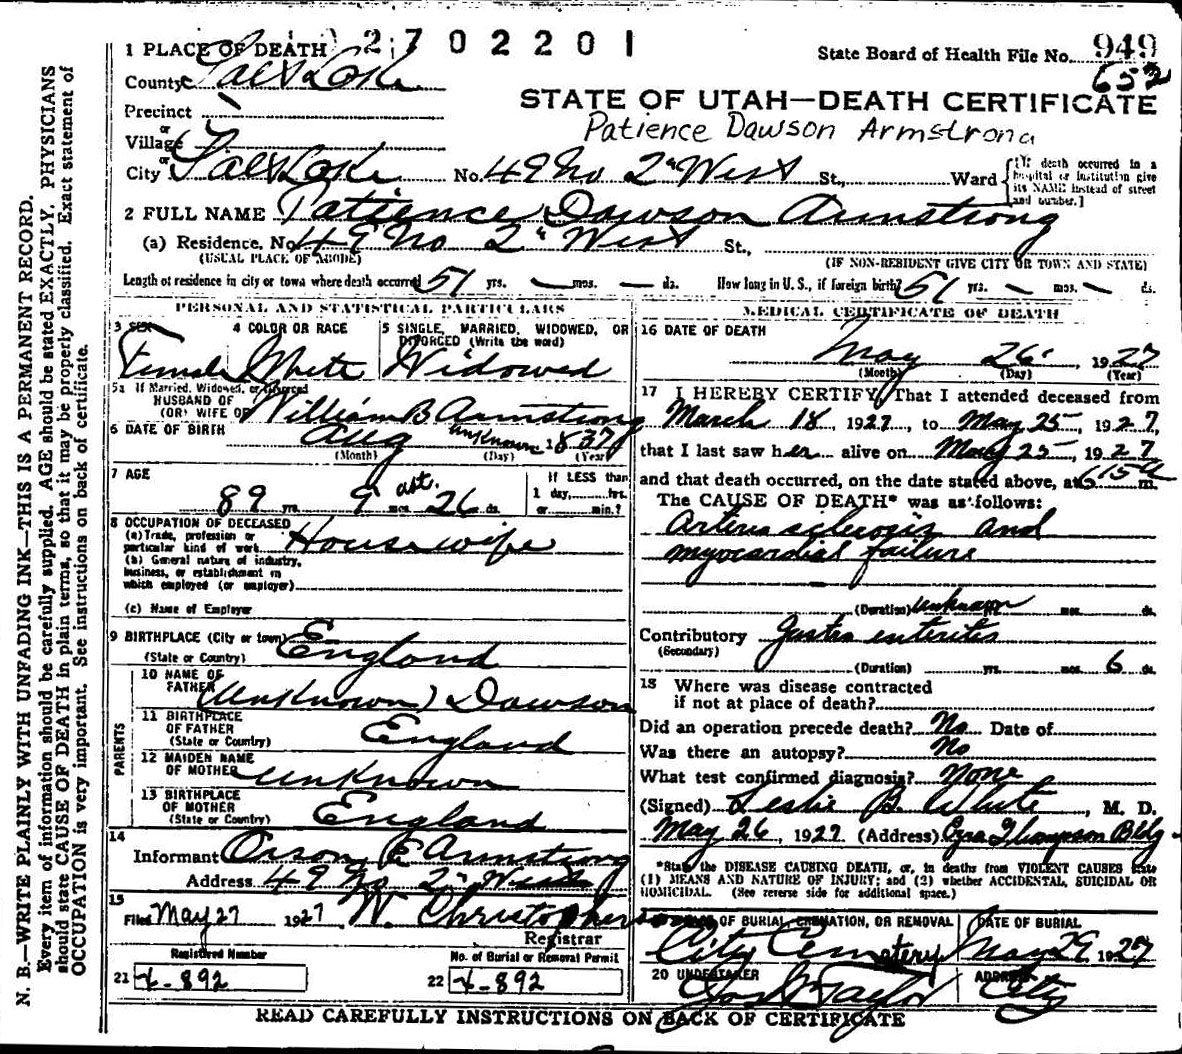 1 PLACE OF DEATH 2702201
State Board of Health File No. 949
652
County Salt Lake
STATE OF UTAH—DEATH CERTIFICATE
Precinct
Patience Dawson Armstrong
or
Village
or
City Salt Lake No. 49 No 2d West St., Ward {[If death occurred in a hospital or institution give its NAME instead of street and number.]
2 FULL NAME Patience Dawson Armstrong
(a) Residence, No. 49 No 2d West St.,
(USUAL PLACE OF ABODE) (IF NON-RESIDENT GIVE CITY OR TOWN AND STATE)
Length of residence in city or town where death occurred 51 yrs. — mos. — ds. How long in U. S., if foreign birth? 51 yrs. — mos. — ds.
PERSONAL AND STATISTICAL PARTICULARS
3 SEX 4 COLOR OR RACE 5 SINGLE, MARRIED, WIDOWED, OR DIVORCED (Write the word)
Female White Widowed
5a If Married, Widowed, or Divorced
HUSBAND OF
(OR) WIFE OF William B Armstrong
6 DATE OF BIRTH Aug unknown 1837
(Month) (Day) (Year)
7 AGE If LESS than
89 yrs. 9 mos. est. 26 ds. 1 day, hrs.
or min.?
8 OCCUPATION OF DECEASED
(a) Trade, profession or
particular kind of work Housewife
(b) General nature of industry,
business, or establishment in
which employed (or employer)
(c) Name of Employer
9 BIRTHPLACE (City or town)
(State or Country) England
PARENTS
10 NAME OF
FATHER (Unknown) Dawson
11 BIRTHPLACE
OF FATHER
(State or Country) England
12 MAIDEN NAME
OF MOTHER Unknown
13 BIRTHPLACE
OF MOTHER
(State or Country) England
14
Informant Orson E Armstrong
Address 49 No 2d West
15
Filed May 27 1927 W. Christopherson
Registrar
Registered Number No. of Burial or Removal Permit
21 x-892 22 x-892
MEDICAL CERTIFICATE OF DEATH
16 DATE OF DEATH
May 26 1927
(Month) (Day) (Year)
17 I HEREBY CERTIFY, That I attended deceased from
March 18, 1927, to May 25, 1927,
that I last saw her alive on May 25, 1927
and that death occurred, on the date stated above, at 6:15 a m.
The CAUSE OF DEATH* was as follows:
Arterio sclerosis and
myocardial failure
(Duration) unknown mos. ds.
Contributory Gastro enteritis
(Secondary)
(Duration) yrs. mos. 6 ds.
18 Where was disease contracted
if not at place of death?
Did an operation precede death? No Date of
Was there an autopsy? No
What test confirmed diagnosis? None
(Signed) Leslie B. White, M. D.
May 26, 1927 (Address) Ezra Thompson Bldg
*State the DISEASE CAUSING DEATH, or, in deaths from VIOLENT CAUSES state
(1) MEANS AND NATURE OF INJURY; and (2) whether ACCIDENTAL, SUICIDAL OR
HOMICIDAL. (See reverse side for additional space.)
OF BURIAL, CREMATION, OR REMOVAL DATE OF BURIAL
City Cemetery May 29, 1927
20 UNDERTAKER ADDRESS
Jos Wm Taylor City
READ CAREFULLY INSTRUCTIONS ON BACK OF CERTIFICATE
N. B.—WRITE PLAINLY WITH UNFADING INK—THIS IS A PERMANENT RECORD.
Every item of information should be carefully supplied. AGE should be stated EXACTLY. PHYSICIANS
should state CAUSE OF DEATH in plain terms, so that it may be properly classified. Exact statement of
OCCUPATION is very important. See instructions on back of certificate.